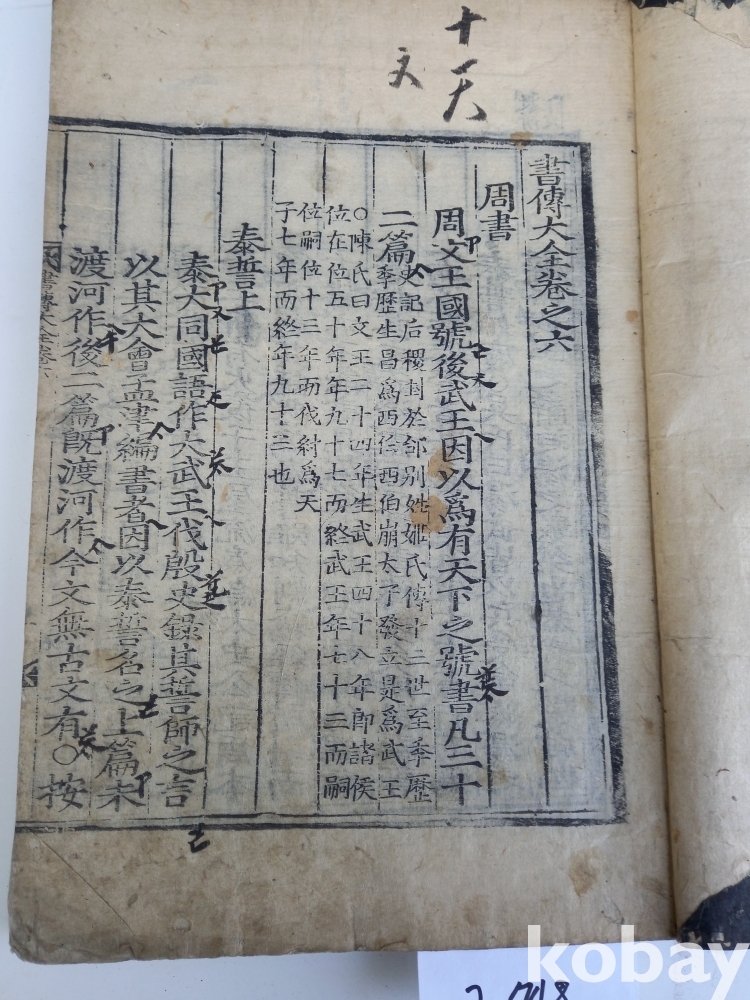 十一
天
文
書傳大全卷之六
周書
周文王國號後武王因以爲有天下之號書凡三十
二篇
史記后稷封於邰別姓姬氏傳十二世至季歷
季歷生昌爲西伯西伯崩太子發立是爲武王
○陳氏曰文王二十四年生武王四十八年即諸侯
位在位五十年年九十七而終武王年七十三而嗣
位嗣位十三年而伐紂爲天
子七年而終年九十三也
泰誓上
泰大同國語作大武王伐殷史錄其誓師之言
以其大會孟津編書者因以泰誓名之上篇未
渡河作後二篇旣渡河作今文無古文有○按
書傳大全卷六
kobay